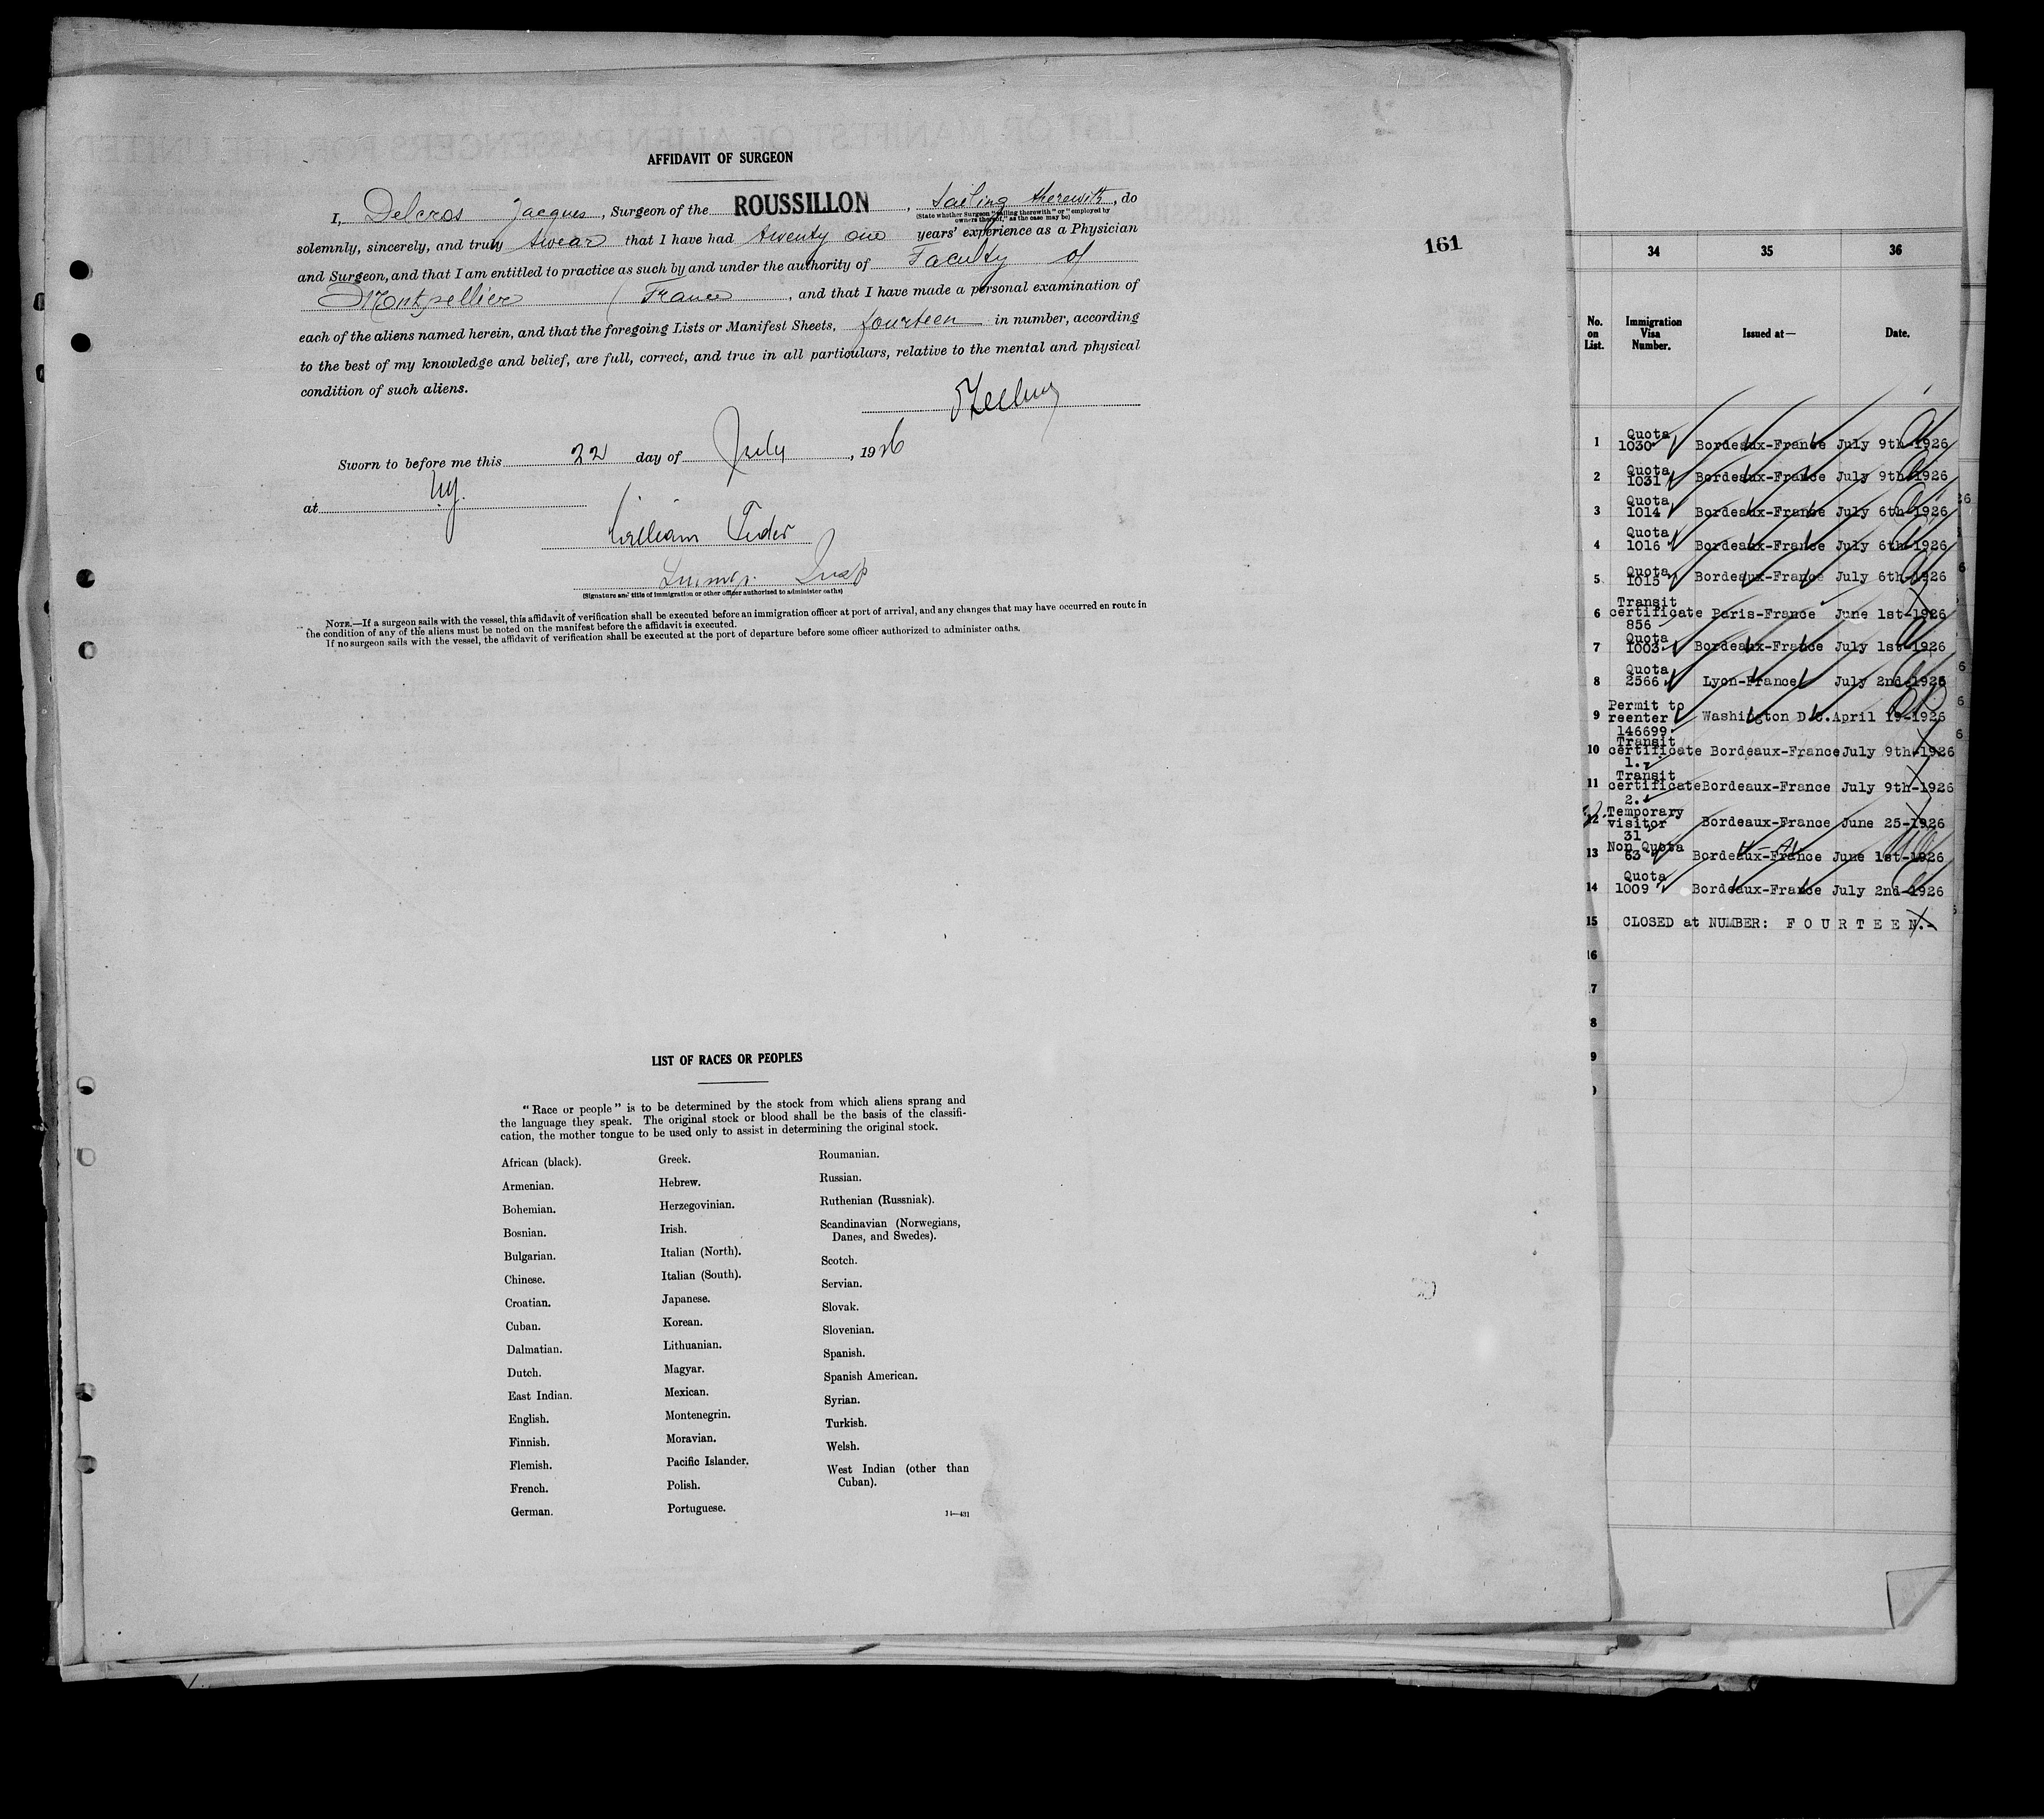 AFFIDAVIT OF SURGEON
I, Delcros Jacques, Surgeon of the ROUSSILLON, sailing therewith, do
(State whether Surgeon "sailing therewith" or "employed by
owners thereof," as the case may be)
solemnly, sincerely, and truly swear that I have had twenty one years' experience as a Physician
and Surgeon, and that I am entitled to practice as such by and under the authority of Faculty of
Montpellier (France, and that I have made a personal examination of
each of the aliens named herein, and that the foregoing Lists or Manifest Sheets, fourteen in number, according
to the best of my knowledge and belief, are full, correct, and true in all particulars, relative to the mental and physical
condition of such aliens.
Sworn to before me this 22 day of July, 1926
at NY.
William
Immgr. Insp
(Signature and title of immigration or other officer authorized to administer oaths)
NOTE.—If a surgeon sails with the vessel, this affidavit of verification shall be executed before an immigration officer at port of arrival, and any changes that may have occurred en route in
the condition of any of the aliens must be noted on the manifest before the affidavit is executed.
If no surgeon sails with the vessel, the affidavit of verification shall be executed at the port of departure before some officer authorized to administer oaths.
161
LIST OF RACES OR PEOPLES
"Race or people" is to be determined by the stock from which aliens sprang and
the language they speak. The original stock or blood shall be the basis of the classifi-
cation, the mother tongue to be used only to assist in determining the original stock.
African (black).
Armenian.
Bohemian.
Bosnian.
Bulgarian.
Chinese.
Croatian.
Cuban.
Dalmatian.
Dutch.
East Indian.
English.
Finnish.
Flemish.
French.
German.
Greek.
Hebrew.
Herzegovinian.
Irish.
Italian (North).
Italian (South).
Japanese.
Korean.
Lithuanian.
Magyar.
Mexican.
Montenegrin.
Moravian.
Pacific Islander.
Polish.
Portuguese.
Roumanian.
Russian.
Ruthenian (Russniak).
Scandinavian (Norwegians,
Danes, and Swedes).
Scotch.
Servian.
Slovak.
Slovenian.
Spanish.
Spanish American.
Syrian.
Turkish.
Welsh.
West Indian (other than
Cuban).
14—431
34 35 36
No. on List. Immigration Visa Number. Issued at— Date.
1 Quota 1030 Bordeaux-France July 9th-1926
2 Quota 1031 Bordeaux-France July 9th-1926
3 Quota 1014 Bordeaux-France July 6th-1926
4 Quota 1016 Bordeaux-France July 6th-1926
5 Quota 1015 Bordeaux-France July 6th-1926
6 Transit certificate 856 Paris-France June 1st-1926
7 Quota 1003 Bordeaux-France July 1st-1926
8 Quota 2566 Lyon-France July 2nd-1926
9 Permit to reenter 146699 Washington D.C. April 19-1926
10 Transit certificate 1. Bordeaux-France July 9th-1926
11 Transit certificate 2. Bordeaux-France July 9th-1926
12 Temporary visitor 31 Bordeaux-France June 25-1926
13 Non Quota 63 Bordeaux-France June 1st-1926
14 Quota 1009 Bordeaux-France July 2nd-1926
15 CLOSED at NUMBER: F O U R T E E N.-
16
7
8
9